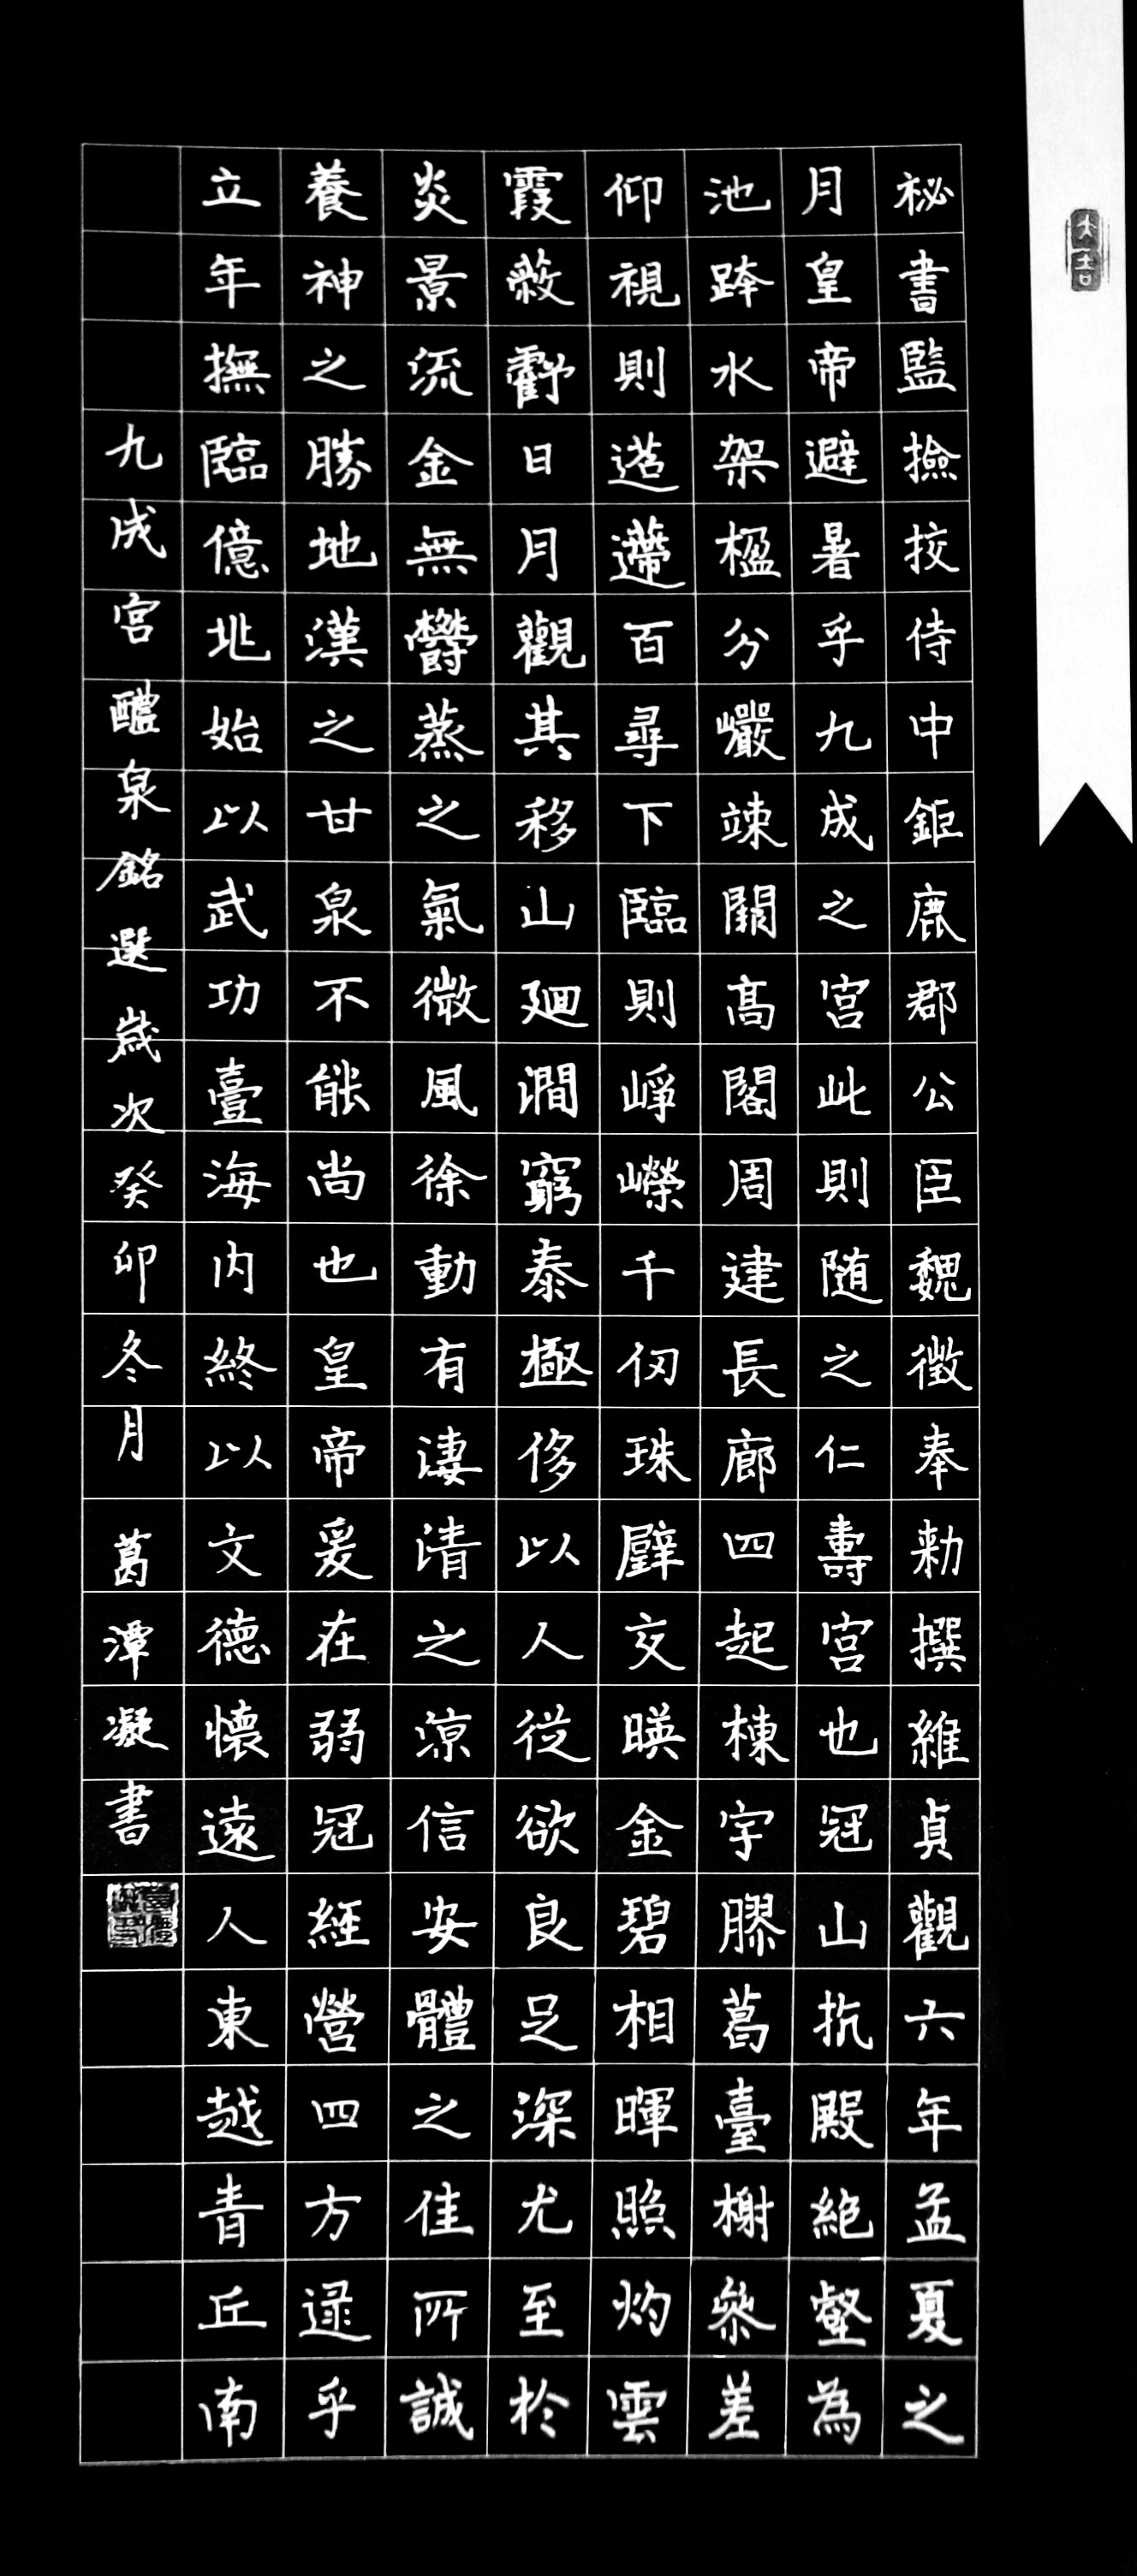 大吉
秘書監撿挍侍中鉅鹿郡公臣魏徵奉勑撰維貞觀六年孟夏之
月皇帝避暑乎九成之宮此則随之仁壽宮也冠山抗殿絶壑為
池跨水架楹分巖竦闕高閣周建長廊四起棟宇膠葛臺榭參差
仰視則迢遰百尋下臨則崢嶸千仞珠壁交暎金碧相暉照灼雲
霞蔽虧日月觀其移山廻澗窮泰極侈以人従欲良足深尤至於
炎景流金無鬱蒸之氣微風徐動有淒清之涼信安體之佳所誠
養神之勝地漢之甘泉不能尚也皇帝爰在弱冠經營四方逯乎
立年撫臨億兆始以武功壹海内終以文德懷遠人東越青丘南
九成宮醴泉銘選歲次癸卯冬月葛潭凝書